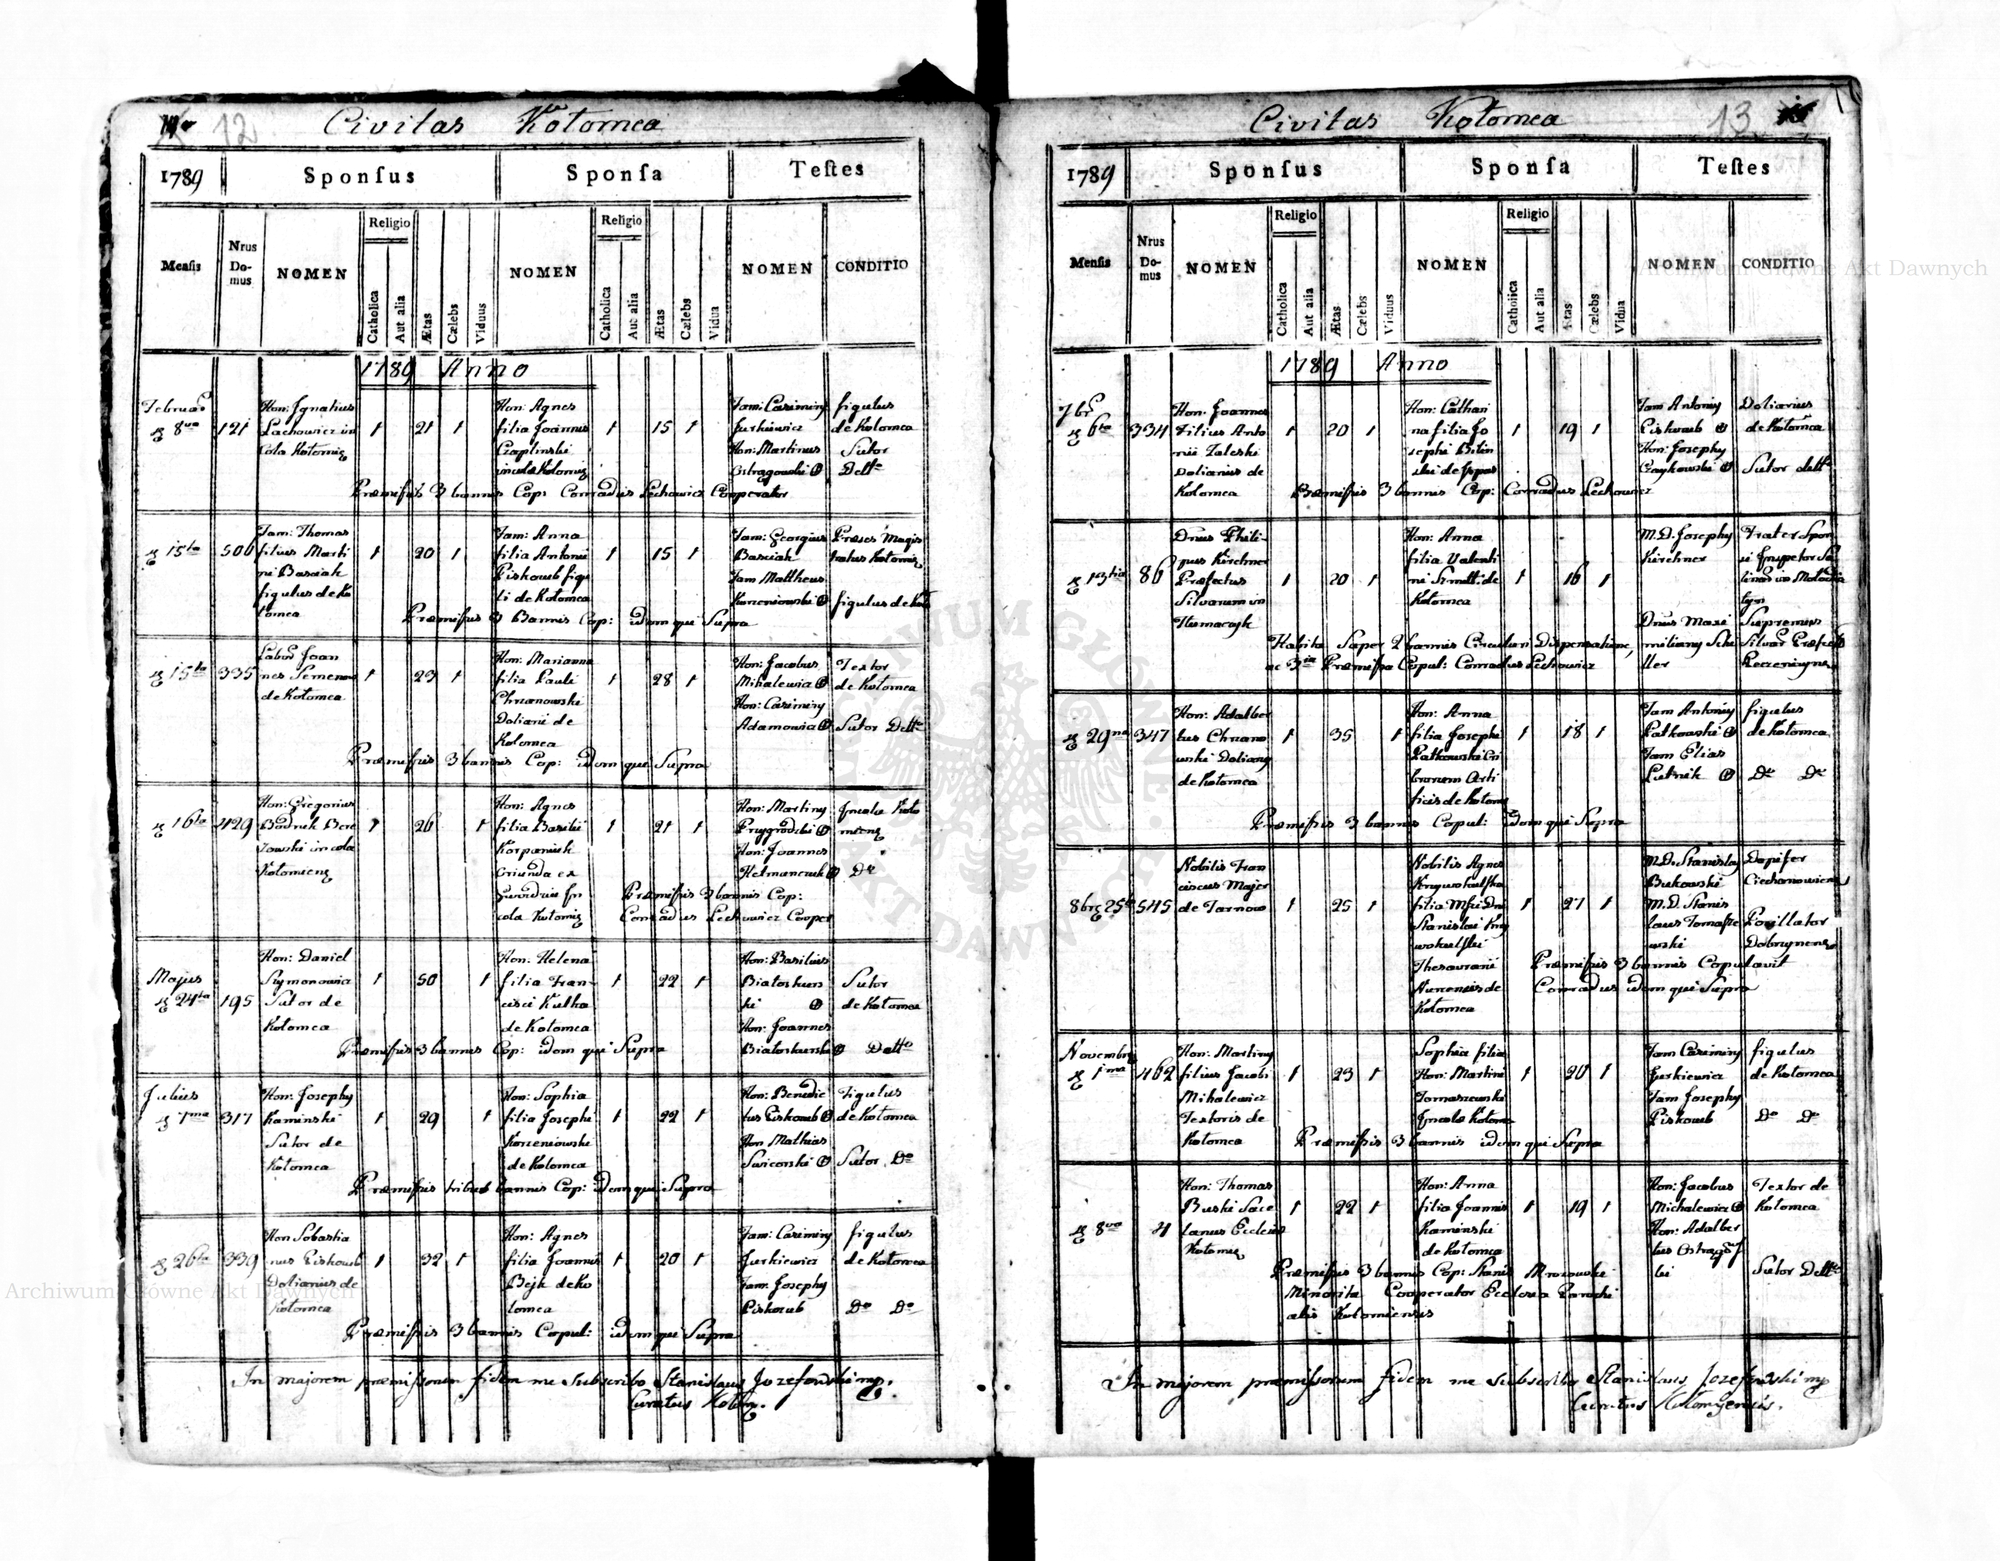 12
Civitas Kołomea
1789 Sponſus Sponſa Teſtes
Menſis
Nrus Do-mus
NOMEN
Religio
Catholica
Aut alia
Ætas
Cælebs
Viduus
NOMEN
Religio
Catholica
Aut alia
Ætas
Cælebs
Vidua
NOMEN
CONDITIO
1789 Anno
8va 121
Hon: Ignatius
Lachowicz in
cola Kolomie
1 21 1
Hon: Agnes
filia Joannis
Czaplinski
incola Kolomie
1 15 1
Fam: Casimiry
Jurkiewicz
Hon: Martinus
figulus
de Kolomea
Sutor
Detto
Præmiſsis 3 bannis Cop: Conradus Lechowicz Cooperator
15ta 506
Fam: Thomas
filius Marti
ni Basciak
figulus de Ko
lomea
1 20 1
Fam: Anna
filia Antonii
Piskozub figu
li de Kolomea
1 15 1
Fam: Georgius
Basciak
Fam Mattheus
Korzeniowski
Præses Magis
tratus Kolomie
figulus de Kol
Præmiſsis 3 Bannis Cop: idem qui Supra
15ta 335
Labor Joan
nes Semenow
de Kolomea
1 23 1
Hon: Marianna
filia Pauli
Chrzanowski
Doliarii de
Kolomea
1 28 1
Hon: Jacobus
Mihalewicz
Hon: Casimiry
Adamowicz
Textor
de Kolomea
Sutor Detto
Præmiſsis 3 bannis Cop: idem qui Supra
16ta 429
Hon: Gregorius
incola
Kolomiens
1 26 1
Hon: Agnes
filia Basilii
Karpaniuk
oriunda ex
cola Kolomie
1 21 1
Hon: Martiny
Hon: Joannes
Hetmanczuk
Incola Kolo
miens
Do
Præmiſsis 3 bannis Cop:
Conradus Lechowicz Cooper
Majus
24ta 195
Hon: Daniel
Szymonowicz
Sutor de
Kolomea
1 50 1
Hon: Helena
filia Fran-
cisci Kulka
de Kolomea
1 22 1
Hon: Basilius
Białoskurs
ki
Hon: Joannes
Białoskurski
Sutor
de Kolomea
Detto
Præmiſsis 3 bannis Cop: idem qui Supra
Julius
7ma 317
Hon: Josephy
Kaminski
Sutor de
Kolomea
1 29 1
Hon: Sophia
filia Josephi
Korzeniowski
de Kolomea
1 22 1
Hon: Benedic
tus Piskozub
Hon Mathias
Figulus
de Kolomea
Sutor Do
Præmiſsis tribus bannis Cop: Idem qui Supra
26ta 339
Hon Sebastia
nus Piskozub
Doliarius de
Kolomea
1 32 1
Hon: Agnes
filia Joannis
Bejk de Ko
lomea
1 20 1
Fam: Casimiry
Jurkiewicz
Fam: Josephy
Piskozub
figulus
de Kolomea
Do Do
Præmiſsis 3 bannis Copul: idem qui Supra
In majorem præmissorum fidem me Subscribo Stanislaus Jozefowski mp.
Curatus Kolom.
13
Civitas Kołomea
1789 Sponſus Sponſa Teſtes
Menſis
Nrus Do-mus
NOMEN
Religio
Catholica
Aut alia
Ætas
Cælebs
Viduus
NOMEN
Religio
Catholica
Aut alia
Ætas
Cælebs
Vidua
NOMEN
CONDITIO
1789 Anno
7br
6ta 334
Hon: Joannes
Filius Anto
nii Zaleski
Doliarius de
Kolomea
1 20 1
Hon: Cathari
na filia Jo
sephi
1 19 1
Fam Antoniy
Piskozub
Hon: Josephy
Czaykowski
Doliarius
de Kolomea
Sutor detto
Præmiſsis 3 bannis Cop: Conradus Lechowicz
13tia 86
Dnus Phili-
pus Kirchner
Præfectus
Silvarum in
Tłumaczyk
1 20 1
Hon: Anna
filia Valenti
ni
Kolomea
1 16 1
M.D. Josephy
Kirchner
Dnus Maxi
miliany Sche
ller
Frater Spon
si
Supremus
Silvar Præfect
Habita Super 2 bannis Circulari Dispensatione,
ac 3ia Præmiſsa Copul: Conradus Lechowicz
29na 347
Hon: Adalber
tus Chrzano
wski Doliary
de Kolomea
1 35 1
Hon: Anna
filia Josephi
Patkowski Cri
brorum Arti
ficis de Kolom
1 18 1
Fam Antoniy
Patkowski
Fam Elias
Lutnik
figulus
de Kolomea
Do Do
Præmiſsis 3 bannis Copul: idem qui Supra
8bris 25ta 545
Nobilis Fran
ciscus Majer
de Tarnow
1 25 1
Nobilis Agnes
filia Mfci Dni
Stanislai
Thesaurarii
de
Kolomea
1 27 1
M.D. Stanislay
Bukowski
M.D. Stanis
laus Tomasze
wski
Dapifer
Ciechanowiens
Pocillator
Dobrynens
Præmiſsis 3 bannis Copulavit
Conradus idem qui Supra
Novembris
1ma 462
Hon: Martiny
filius Jacobi
Mihalewicz
Textoris de
Kolomea
1 23 1
Sophia filia
Hon: Martini
Tomaszewski
Incola Kolome
1 20 1
Fam Casimiry
Jurkiewicz
Fam Josephy
Piskozub
figulus
de Kolomea
Do Do
Præmiſsis 3 bannis idem qui Supra
8va 4
Hon: Thomas
Buski
Eccleſiæ
Kolomie
1 22 1
Hon: Anna
filia Joannis
Kaminski
de Kolomea
1 19 1
Hon: Jacobus
Michalewicz
Hon: Adalber
tus
Textor de
Kolomea
Sutor Detto
Præmiſsis 3 bannis Cop: Stanis Mrozowski
Minorita Cooperator Ecclesia Parochi
alis Kolomiensis
In majorem præmissorum fidem me Subscribo Stanislaus Jozefowski mp
Curatus Kolomyensis.
Archiwum Główne Akt Dawnych
Archiwum Główne Akt Dawnych
ARCHIWUM GŁÓWNE AKT DAWNYCH